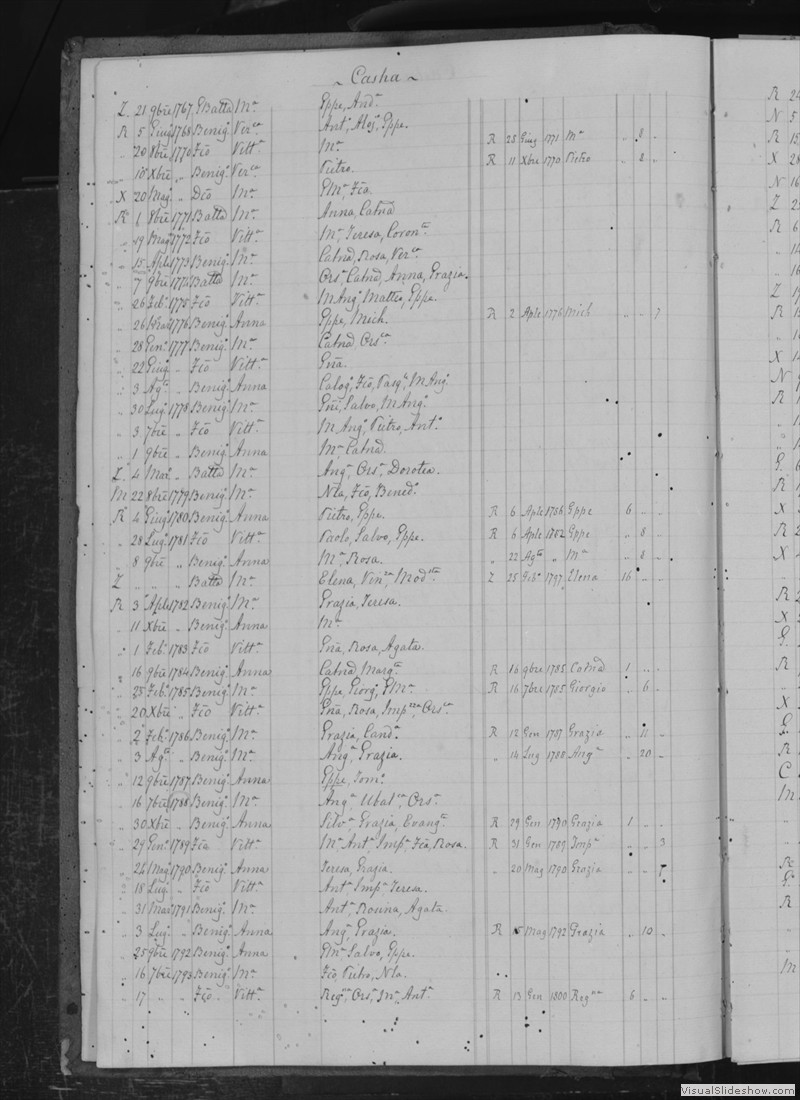 ~ Casha ~
Z. 21 9bre 1767 GBatta Ma Gppe, Anda
R 5 Giug 1768 Benigo Verca Anto, Aloj, Gppe.
" 20 8bre 1770 Fco Vitta Ma R 25 Giug 1771 Ma " 8 "
" 10 Xbre " Benigo Verca Pietro. R 11 Xbre 1770 Pietro " 2 "
X 20 Mago " Dco Ma GMa, Fca.
R 1 8bre 1771 Batta Ma Anna, Catnd
" 19 Mago 1772 Fco Vitta Ma, Teresa, Coronta
" 15 Aple 1773 Benigo Ma Catnd, Rosa, Verca
" 7 9bre 1774 Batta Ma Orsa, Catnd, Anna, Grazia.
" 26 Febo 1775 Fco Vitta MAngo Matteo, Gppe.
" 26 Mar 1776 Benigo Anna Gppe, Mich. R 2 Aple 1776 Mich " " 7
" 28 Geno 1777 Benigo Ma Catnd, Orsca
" 22 Giug " Fco Vitta Gna.
" 3 Ago " Benigo Anna Calogo, Fco, Pasqo, MAngo
" 30 Lugo 1778 Benigo Ma Gni, Salvo, MAngo
" 3 7bre " Fco Vitta MAngo, Pietro, Anto
" 1 9bre " Benigo Anna Ma, Catnd.
Z 4 Maro " Batta Ma Anga, Orsa, Dorotea.
M 22 8bre 1779 Benigo Ma Nla, Fco, Bened.o
R 4 Giug 1780 Benigo Anna Pietro, Gppe. R 6 Aple 1786 Gppe 6 " "
" 28 Lugo 1781 Fco Vitta Paolo, Salvo, Gppe. R 6 Aple 1782 Gppe " 8 "
" 8 9bre " Benigo Anna Ma, Rosa. " 22 Ago " Ma " 8 "
Z " " " Batta Ma Elena, Vinza, Modsta Z 25 Febo 1797 Elena 16 " "
R 3 Aple 1782 Benigo Ma Grazia, Teresa.
" 11 Xbre " Benigo Anna Ma
" 1 Febo 1783 Fco Vitta Gna, Rosa, Agata.
" 16 9bre 1784 Benigo Anna Catnd, Marga R 16 9bre 1785 Catnd 1 " "
" 25 Febo 1785 Benigo Ma Gppe, Giorgo, GMa R 16 7bre 1785 Giorgio " 6 "
" 20 Xbre " Fco Vitta Gna, Rosa, Impza, Orsca
" 2 Febo 1786 Benigo Ma Grazia, Canda R 12 Gen 1787 Grazia " 11 "
" 3 Ago " Benigo Ma Anga, Grazia. " 14 Lug 1788 Anga " 20 "
" 12 9bre 1787 Benigo Anna Gppe, Tomo
" 16 7bre 1788 Benigo Ma Anga Ubal Orsa
" 30 Xbre " Benigo Anna Silva Grazia, Evanga R 29 Gen 1790 Grazia 1 " "
" 29 Geno 1789 Fco Vitta Ma Anta, Impa, Fca, Rosa. R 31 Gen 1789 Impa " " 3
" 24 Mago 1790 Benigo Anna Teresa, Grazia. " 20 Mag 1790 Grazia " " 7
" 18 Lug " Fco Vitta Anta Impa, Teresa.
" 31 Mar 1791 Benigo Ma Anta, Rosina, Agata.
" 3 Lugo " Benigo Anna Anga, Grazia. R 5 Mag 1792 Grazia " 10 "
" 25 9bre 1792 Benigo Anna GMa Salvo, Gppe.
" 16 7bre 1793 Benigo Ma Fco, Pietro, Nla.
" 17 " " Fco Vitta Regna, Orsa, Ma, Anta R 13 Gen 1800 Regna 6 " "
VisualSlideshow.com